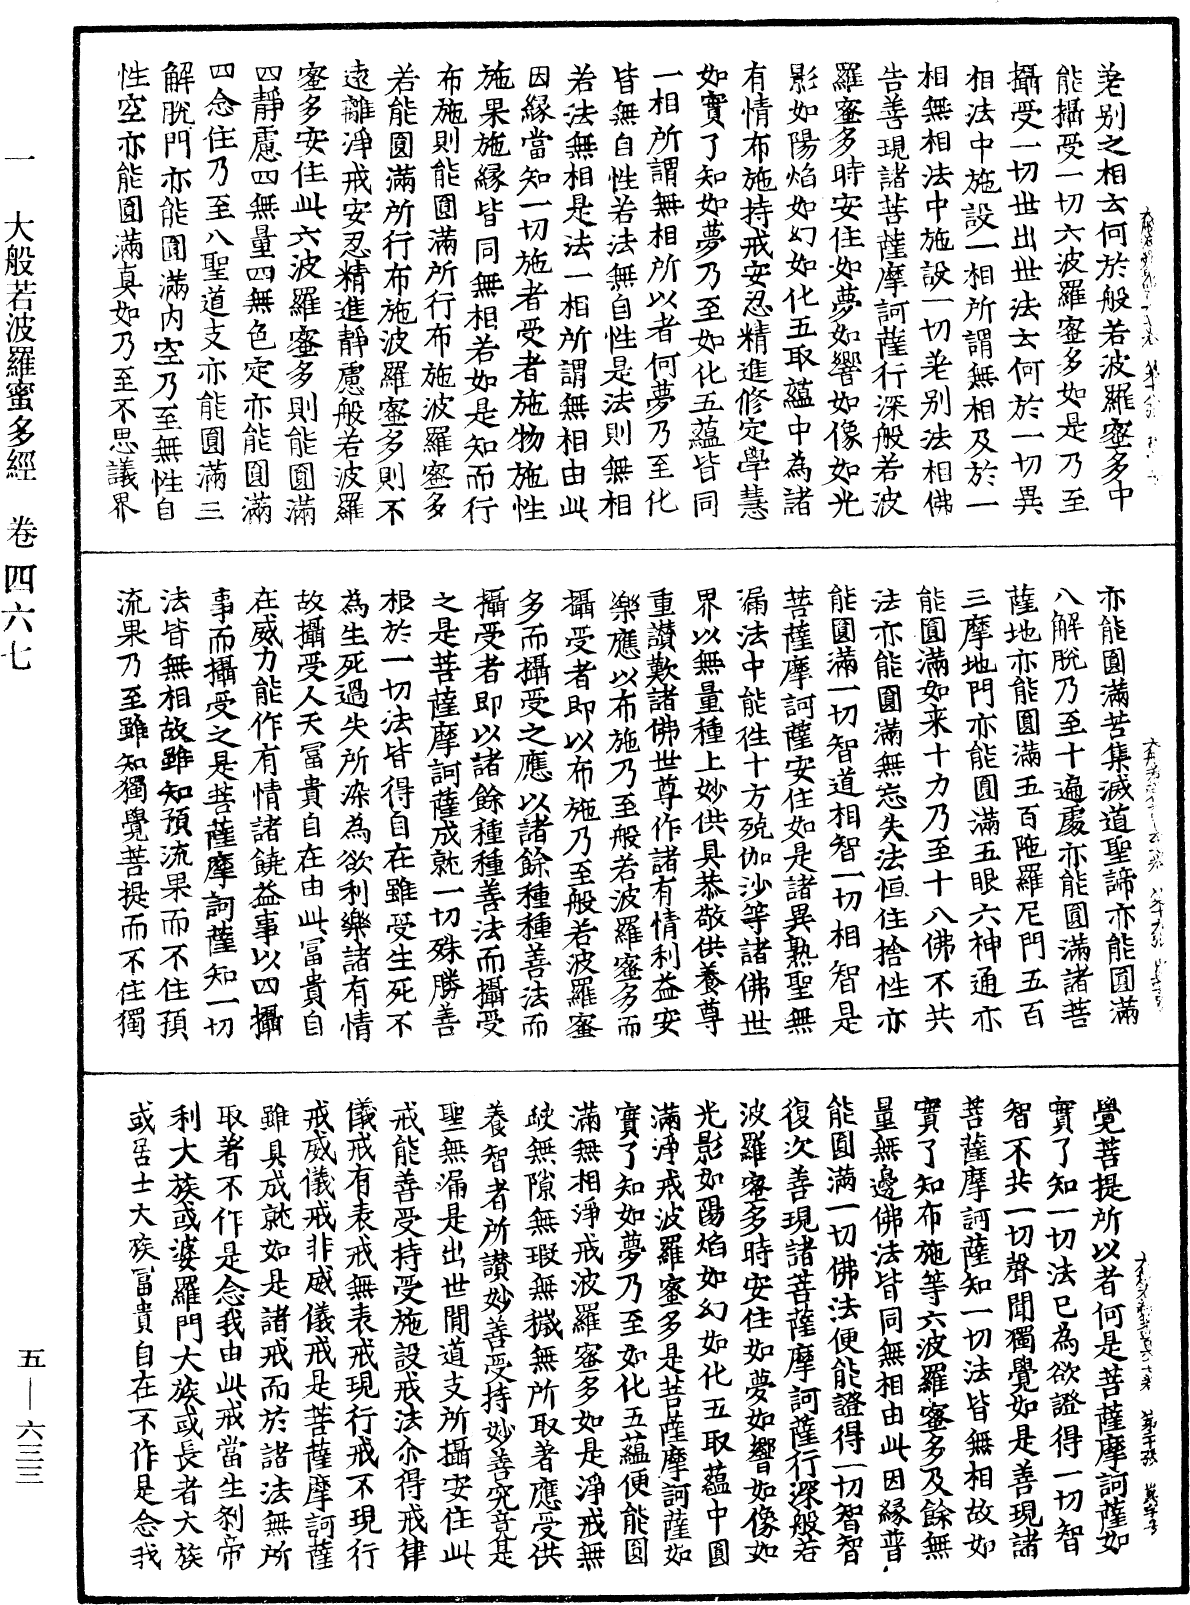 差别之相云何於般若波羅蜜多中
能攝受一切六波羅蜜多如是乃至
攝受一切世出世法云何於一切異
相法中施設一相所謂無相及於一
相無相法中施設一切差别法相佛
告善現諸菩薩摩訶薩行深般若波
羅蜜多時安住如夢如響如像如光
影如陽焰如幻如化五取蘊中為諸
有情布施持戒安忍精進修定學慧
如實了知如夢乃至如化五蘊皆同
一相所謂無相所以者何夢乃至化
皆無自性若法無自性是法則無相
若法無相是法一相所謂無相由此
因緣當知一切施者受者施物施性
施果施緣皆同無相若如是知而行
布施則能圓滿所行布施波羅蜜多
若能圓滿所行布施波羅蜜多則不
遠離淨戒安忍精進靜慮般若波羅
蜜多安住此六波羅蜜多則能圓滿
四靜慮四無量四無色定亦能圓滿
四念住乃至八聖道支亦能圓滿三
解脫門亦能圓滿內空乃至無性自
性空亦能圓滿真如乃至不思議界
亦能圓滿苦集滅道聖諦亦能圓滿
八解脫乃至十遍處亦能圓滿諸菩
薩地亦能圓滿五百陁羅尼門五百
三摩地門亦能圓滿五眼六神通亦
能圓滿如来十力乃至十八佛不共
法亦能圓滿無忘失法恒住捨性亦
能圓滿一切智道相智一切相智是
菩薩摩訶薩安住如是諸異熟聖無
漏法中能往十方殑伽沙等諸佛世
界以無量種上妙供具恭敬供養尊
重讃歎諸佛世尊作諸有情利益安
樂應以布施乃至般若波羅蜜多而
攝受者即以布施乃至般若波羅蜜
多而攝受之應以諸餘種種善法而
攝受者即以諸餘種種善法而攝受
之是菩薩摩訶薩成就一切殊勝善
根於一切法皆得自在雖受生死不
為生死過失所染為欲利樂諸有情
故攝受人天富貴自在由此富貴自
在威力能作有情諸饒益事以四攝
事而攝受之是菩薩摩訶薩知一切
法皆無相故雖知預流果而不住預
流果乃至雖知獨覺菩提而不住獨
覺菩提所以者何是菩薩摩訶薩如
實了知一切法已為欲證得一切智
智不共一切聲聞獨覺如是善現諸
菩薩摩訶薩知一切法皆無相故如
實了知布施等六波羅蜜多及餘無
量無邊佛法皆同無相由此因緣普
能圓滿一切佛法便能證得一切智智
復次善現諸菩薩摩訶薩行深般若
波羅蜜多時安住如夢如響如像如
光影如陽焰如幻如化五取蘊中圓
滿淨戒波羅蜜多是菩薩摩訶薩如
實了知如夢乃至如化五蘊便能圓
滿無相淨戒波羅蜜多如是淨戒無
缺無隙無瑕無穢無所取著應受供
養智者所讃妙善受持妙善究竟是
聖無漏是出世間道支所攝安住此
戒能善受持受施設戒法尒得戒律
儀戒有表戒無表戒現行戒不現行
戒威儀戒非威儀戒是菩薩摩訶薩
雖具成就如是諸戒而於諸法無所
取著不作是念我由此戒當生刹帝
利大族或婆羅門大族或長者大族
或居士大族富貴自在不作是念我
一 大般若波羅蜜多經 卷四六七
五—六三三